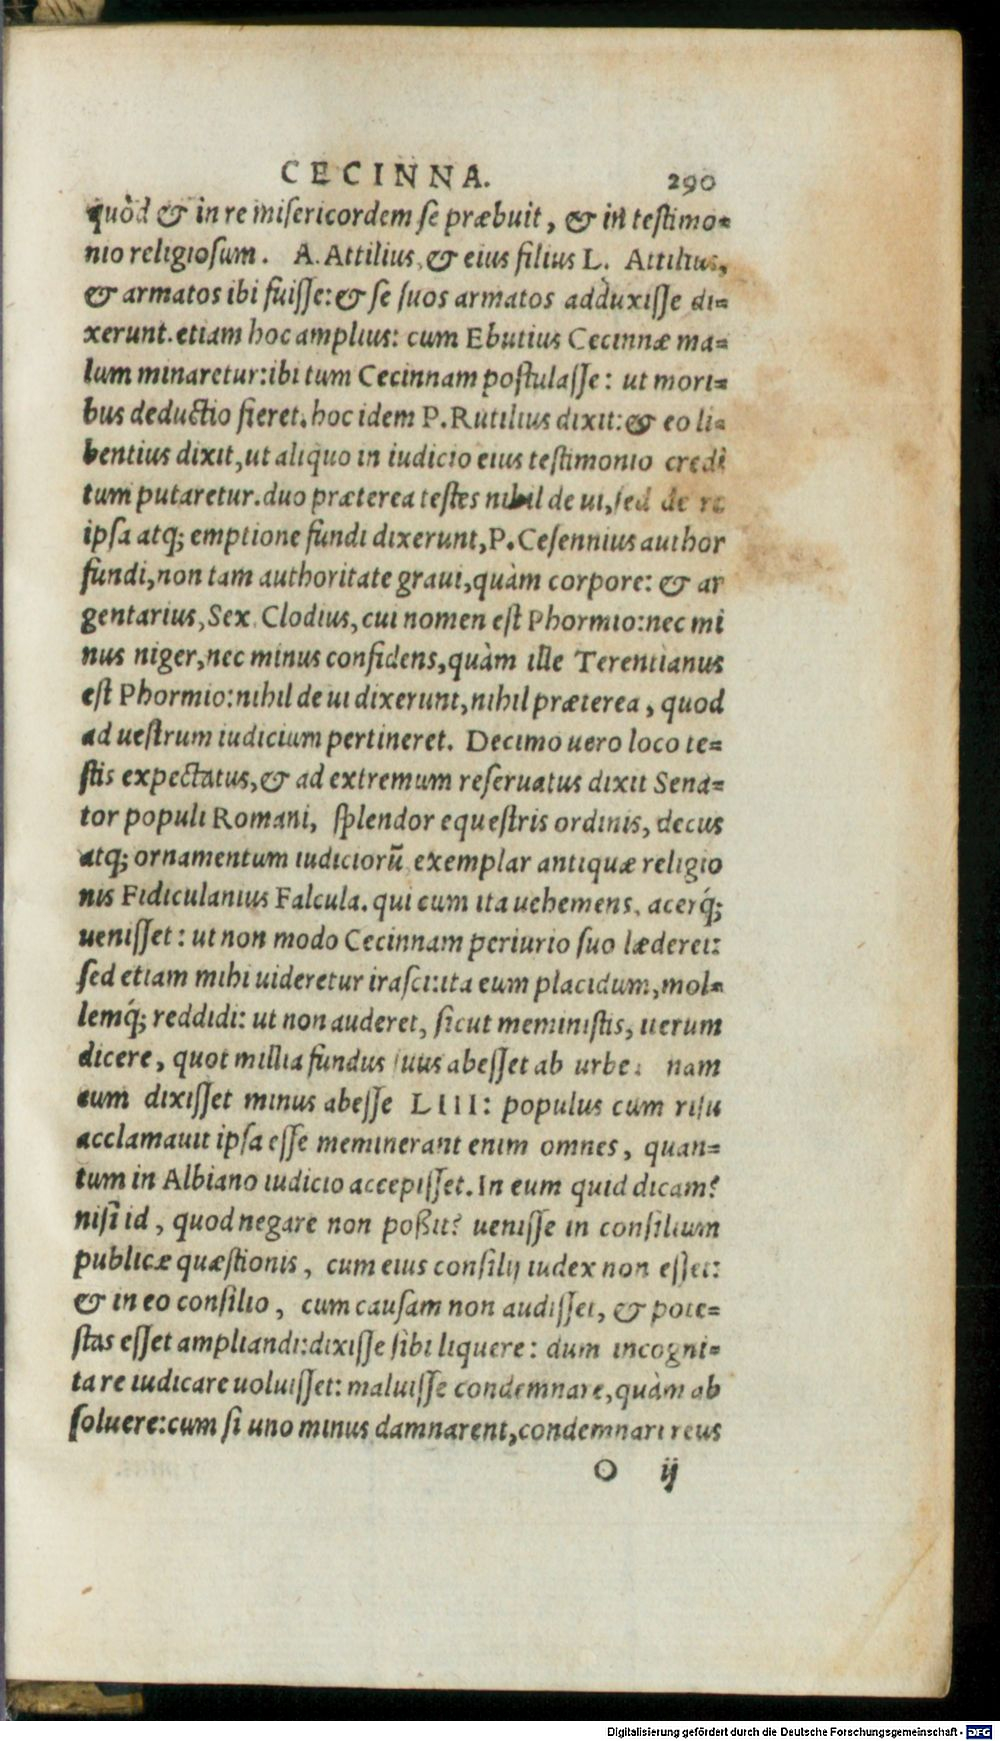 CECINNA. 290
quòd & in re misericordem se præbuit, & in testimo=
nio religiosum. A. Attilius, & eius filius L. Attilius,
& armatos ibi fuisse: & se suos armatos adduxisse di=
xerunt. etiam hoc amplius: cum Ebutius Cecinnæ ma=
lum minaretur: ibi tum Cecinnam postulasse: ut mori=
bus deductio fieret. hoc idem P. Rutilius dixit: & eo li=
bentius dixit, ut aliquo in iudicio eius testimonio credi
tum putaretur. duo præterea testes nihil de ui, sed de re
ipsa atq; emptione fundi dixerunt, P. Cesennius author
fundi, non tam authoritate graui, quàm corpore: & ar
gentarius, Sex. Clodius, cui nomen est Phormio: nec mi
nus niger, nec minus confidens, quàm ille Terentianus
est Phormio: nihil de ui dixerunt, nihil præterea, quod
ad uestrum iudicium pertineret. Decimo uero loco te=
stis expectatus, & ad extremum reseruatus dixit Sena=
tor populi Romani, splendor equestris ordinis, decus
atq; ornamentum iudiciorũ exemplar antiquæ religio
nis Fidiculanius Falcula. qui cum ita uehemens, acerq́;
uenisset: ut non modo Cecinnam periurio suo læderet:
sed etiam mihi uideretur irasci: ita eum placidum, mol=
lemq́; reddidi: ut non auderet, sicut meministis, iterum
dicere, quot millia fundus suus abesset ab urbe: nam
cum dixisset minus abesse LIII: populus cum risu
acclamauit ipsa esse meminerant enim omnes, quan=
tum in Albiano iudicio accepisset. In eum quid dicam?
nisi id, quod negare non poßit? uenisse in consilium
publicæ quæstionis, cum eius consilij iudex non esset:
& in eo consilio, cum causam non audisset, & pote=
stas esset ampliandi: dixisse sibi liquere: dum incogni=
ta re iudicare uoluisset: maluisse condemnare, quàm ab
soluere: cum si uno minus damnarent, condemnari reus
O ij
Digitalisierung gefördert durch die Deutsche Forschungsgemeinschaft - DFG